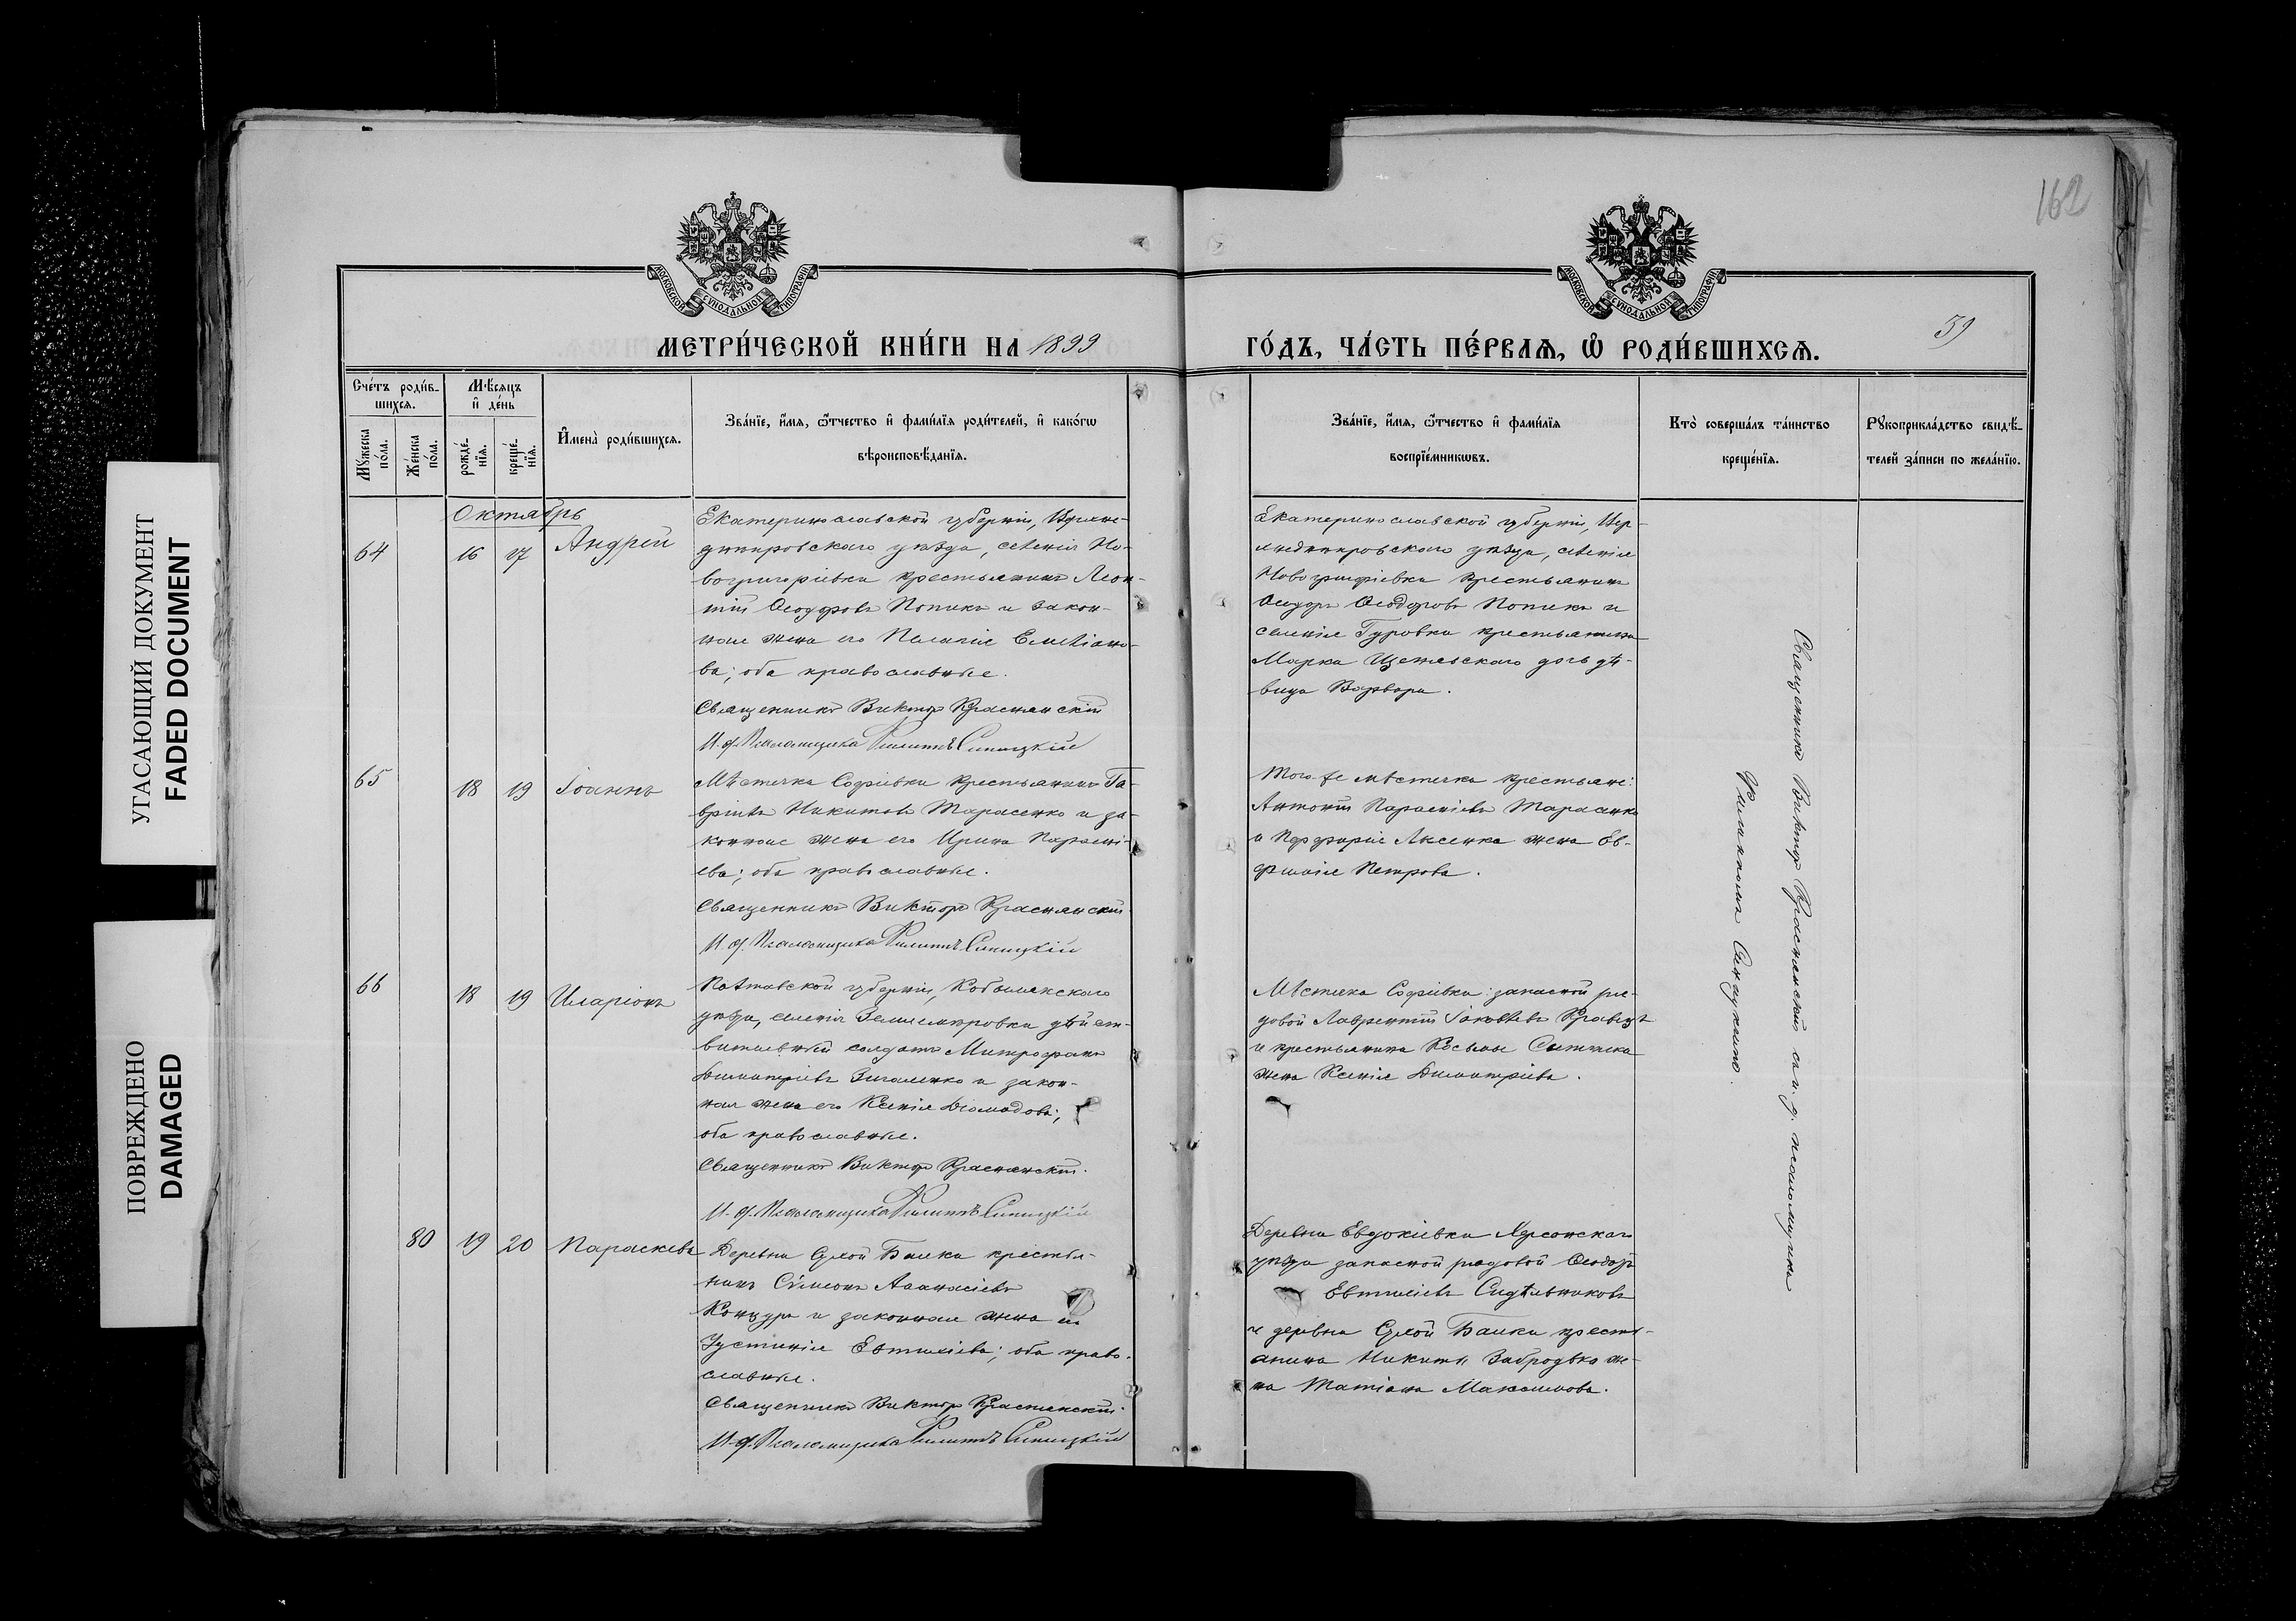 УГАСАЮЩИЙ ДОКУМЕНТ
FADED DOCUMENT
ПОВРЕЖДЕНО
DAMAGED
162
МОСКОВСКОЙ СѴНОДАЛЬНОЙ ТИПОГРАФІИ
МОСКОВСКОЙ СѴНОДАЛЬНОЙ ТИПОГРАФІИ
МЕТРИ́ЧЕСКОЙ КНИ́ГИ НА 1899
ГО́ДЪ, ЧА́СТЬ ПЕ́РВАЯ, Ѡ РОДИ́ВШИХСЯ.
39
Сче́тъ роди́в-
шихся.
Мѣ́сяцъ
и҆ де́нь
Мꙋ́жеска
по́ла.
Же́нска
по́ла.
рожде́-
нїя.
креще́-
нїя.
И҆мена̀ роди́вшихся.
Зва́нїе, и҆́мя, ѻ҆́тчество и҆ фами́лїя роди́телей, и҆ како́гѡ
вѣроисповѣ́данїя.
Зва́нїе, и҆́мя, ѻ҆́тчество и҆ фами́лїя
воспрїе́мникѡвъ.
Кто̀ соверша́лъ та́инство
креще́нїя.
Рꙋкоприкла́дство свидѣ́-
телей за́писи по жела́нїю.
Октябрь
64 16 17 Андрей
Екатеринославской губерніи, Верхне-
днѣпровскаго уѣзда, селенія Но-
вогригорьевки крестьянинъ Леон-
тій Ѳеодоровъ Попикъ и закон-
ная жена его Пелагія Емеліано-
ва; оба православные.
Священникъ Виктор Краснянскій
И. д. Псаломщика Филиппъ Синицкій
Екатеринославской губерніи, Вер-
хнеднѣпровскаго уѣзда, селенія
Новогригорьевки крестьянинъ
Ѳеодоръ Ѳеодоровъ Попикъ и
селенія Гуровки крестьянина
Марка Щетевскаго дочь дѣ-
вица Варвара.
65 18 19 Іоаннъ
Мѣстечка Софіевки крестьянинъ Га-
вріилъ Никитовъ Тарасенко и за-
конная жена его Ирина Парѳені-
ева; оба православные.
Священникъ Викторъ Краснянскій
И. д. Псаломщика Филиппъ Синицкій
Того же мѣстечка крестьяне:
Антоній Парѳеніевъ Тарасенко
и Порфирія Аксенка жена Ев-
фимія Петрова.
66 18 19 Иларіонъ
Полтавской губерніи, Кобелякскаго
уѣзда, селенія дѣйст-
вительный солдатъ Митрофанъ
Димитріевъ Зигаленко и закон-
ная жена его Ксенія Діомидова;
оба православные.
Священникъ Викторъ Краснянскій.
И. д. Псаломщика Филиппъ Синицкій
Мѣстечка Софіевки: запасной ря-
довой Лаврентій Іаковлевъ Кравецъ
и крестьянина Косьмы Сытника
жена Ксенія Димитріева.
80 19 20 Параскева
Деревни Сухой Балки крестья-
нинъ Сѵмеонъ Аѳанасіевъ
Концура и законная жена его
Іустинія Евтихіева; оба право-
славные.
Священникъ Викторъ Краснянскій.
И. д. Псаломщика Филиппъ Синицкій
Деревни Евдокіевки Херсонскаго
уѣзда запасной рядовой Ѳеодоръ
Евтихіевъ Сидѣльниковъ
и деревни Сухой Балки кресть-
янина Никиты Забродько же-
на Татіана Максимова.
Священникъ Викторъ Краснянскій съ и. д. псаломщика
Филиппомъ Синицкимъ.